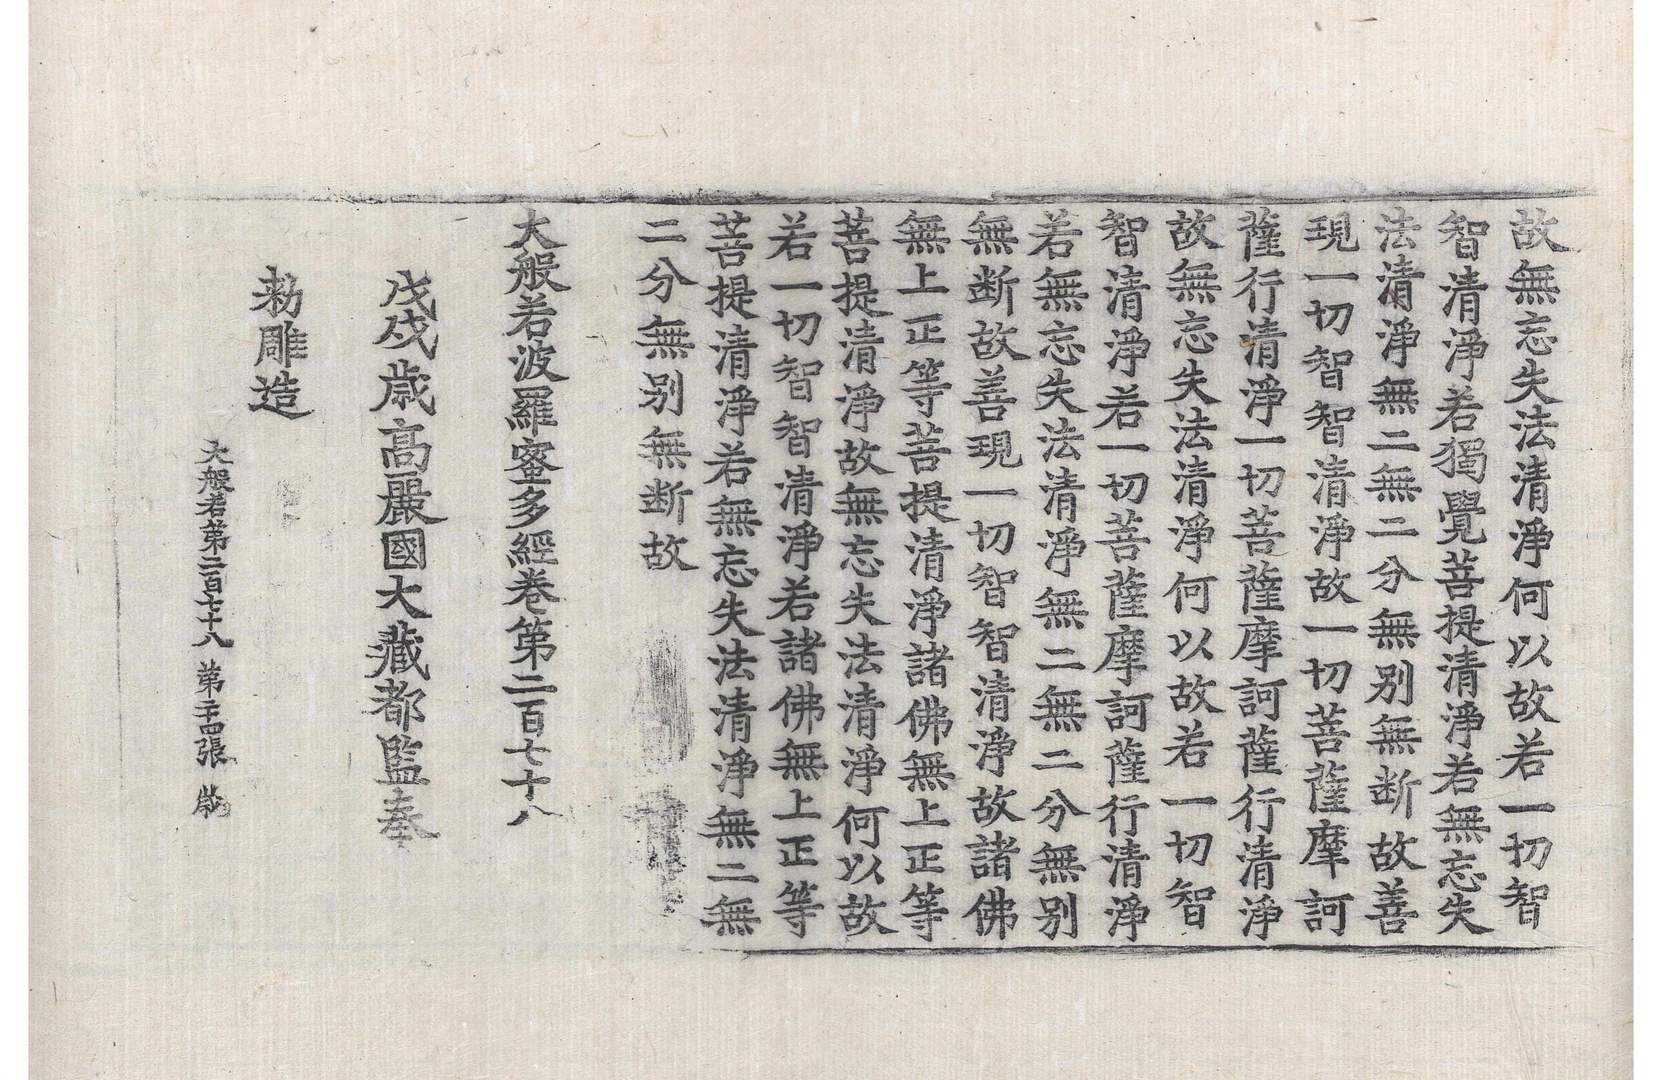 故無忘失法清淨何以故若一切智
智清淨若獨覺菩提清淨若無忘失
法清淨無二無二分無别無断故善
現一切智智清淨故一切菩薩摩訶
薩行清淨一切菩薩摩訶薩行清淨
故無忘失法清淨何以故若一切智
智清淨若一切菩薩摩訶薩行清淨
若無忘失法清淨無二無二分無别
無断故善現一切智智清淨故諸佛
無上正等菩提清淨諸佛無上正等
菩提清淨故無忘失法清淨何以故
若一切智智清淨若諸佛無上正等
菩提清淨若無忘失法清淨無二無
二分無别無断故
大般若波羅蜜多經卷第二百七十八
戊戌歲高麗國大藏都監奉
勑雕造
大般若第二百七十八 第二十四張 歲